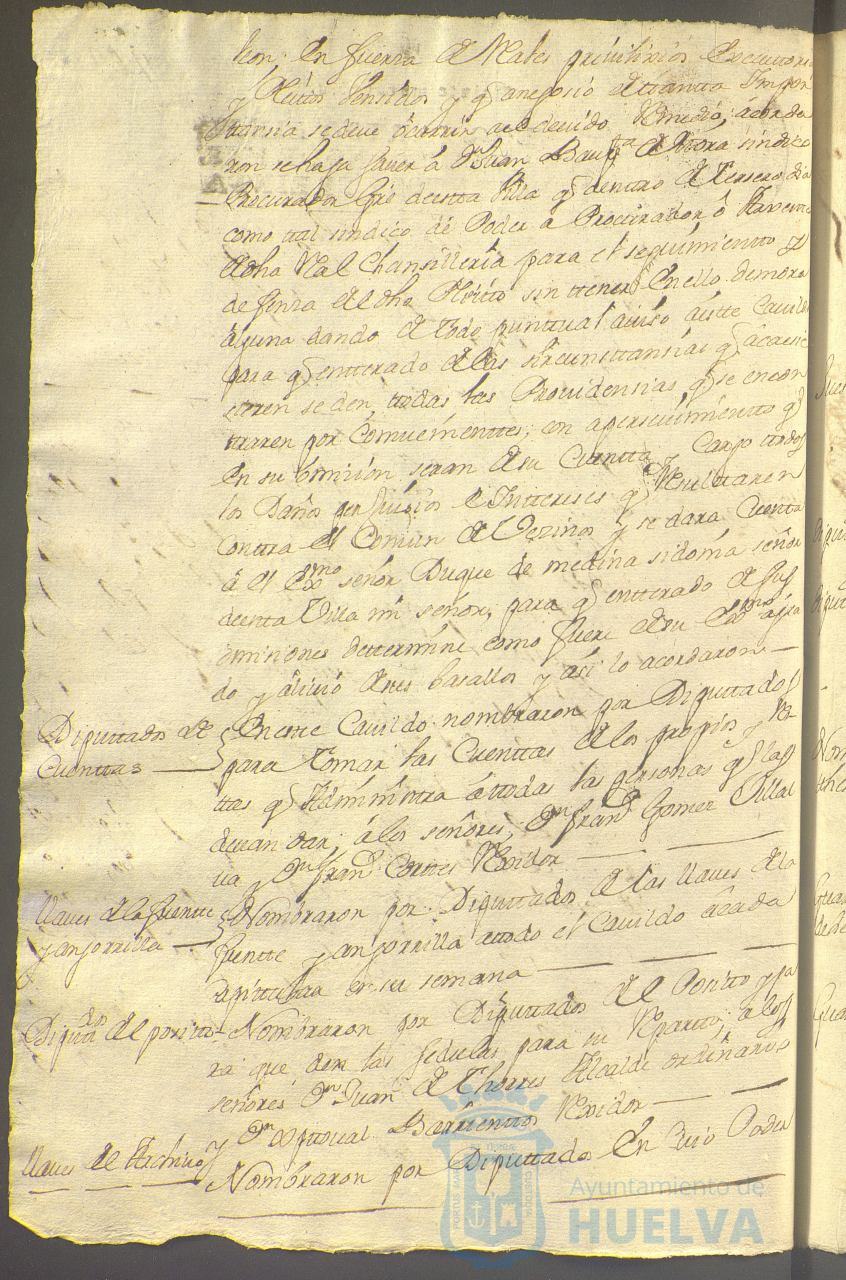 hon, en fuerza de Reales privilixios executori
y Pleitos Vensidos y q̃ a negosio de tanta Impor
ttansia se deve ocurrir al devido Remedio, acorda
ron se haga saver á Dn Juan Baupta de Mora sindico
Procurador Grẽ de esta Villa q̃ dentro de Tersero dia
como ttal sindico dé Poder a Procurador ó
de dha Rl Chansilleria para el seguimientto y
defensa de dho Pleitto sin ttener en ello demora
alguna dando de todo punttual aviso á este Cavildo
para q̃ entterado de las sircunsttansias q̃ acaesie
sieren se den ttodas las Providensias q̃ se encon
traren por Comvenienttes, con apersevimientto q̃
en su omision seran de su Cuentta y Cargo ttodos
los Daños perjuisios e Inttereses q̃ Resulttaren
Conttra el Comun de Vezinos y se dara Cuenta
á el Exmo señor Duque de medina sidonia señor
de esta Villa mi señor, para q̃ entterado de sus
omisiones dettermine como fuere de su Exmo agra
do y alivio de sus basallos y asi lo acordaron —
Diputtados de
Cuenttas —
En este Cavildo nombraron por Diputtados
para tomar las Cuenttas de los propios y Ren
ttas q̃ Administra á ttodas las personas q̃ las
devan dar, á los señores, Dn Franco Gomez Villal
va y Dn Franco Cortes Rexidor —
llaves de la fuente
y anjorrilla —
Nombraron por Diputtados de las llaves de la
fuentte y anjorrilla a ttodo el Cavildo á cada
Capittular en su semana —
Diputados del positto =
Nombraron por Diputtados del Positto y pa
ra que den las sedulas para su Reparto, a los
señores Dn Juan de Thorres Alcalde ordinario
y Dn Xptoval Barrientos Rexidor —
llaves del Archivo
Nombraron por Diputtados en cuio Poder
Ayuntamiento de
HUELVA